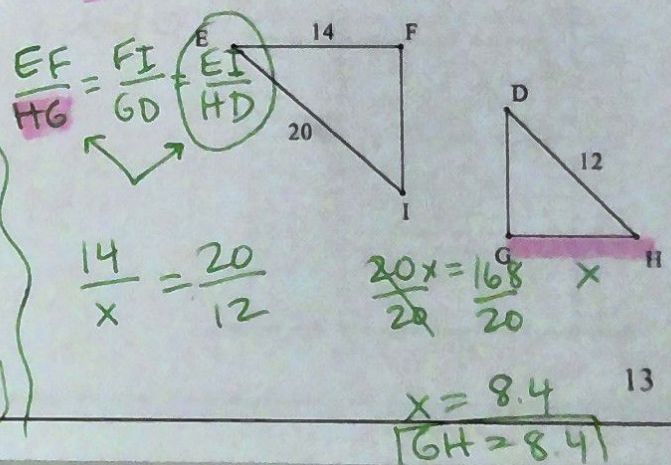 E 14 F
EF/HG = FI/GD = EI/HD
20
I
D
12
G H
x
14/x = 20/12
20x/20 = 168/20
x = 8.4
GH = 8.4
13